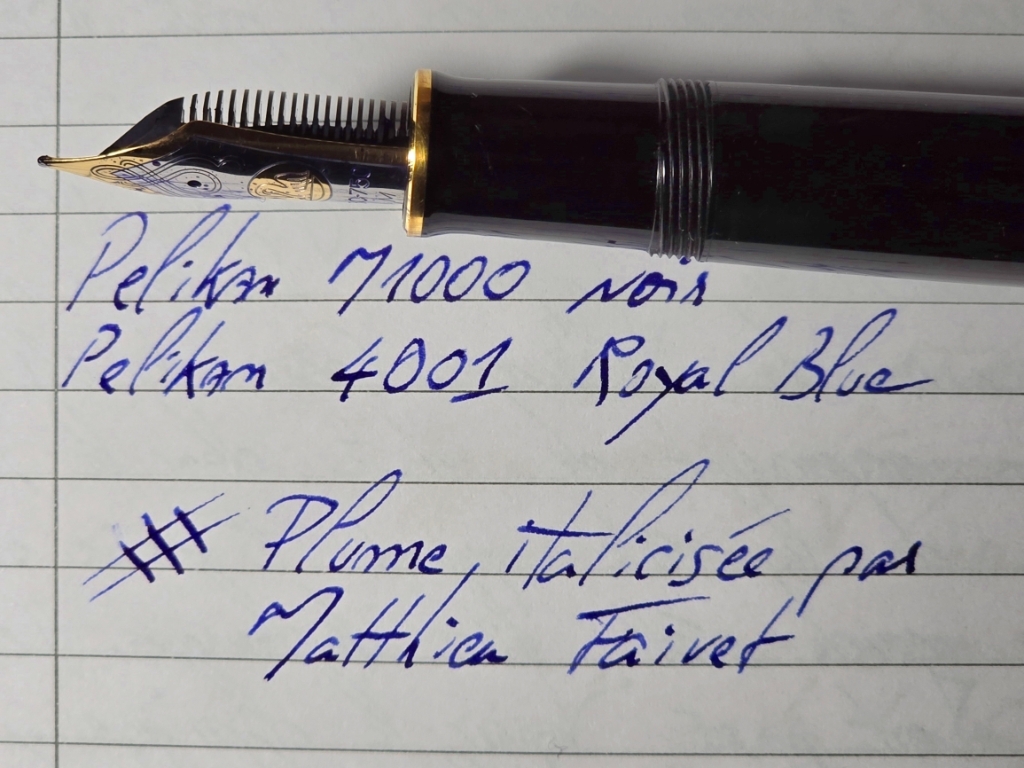 Pelikan M1000 noir
Pelikan 4001 Royal Blue
Plume italicisée par
Matthieu Faivet